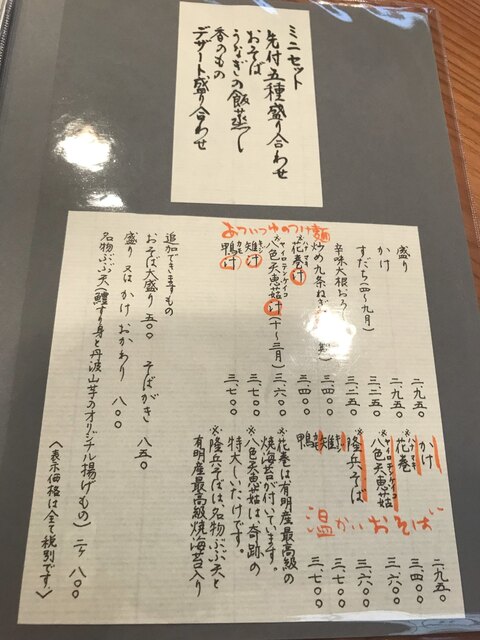 ミニセット
先付五種盛り合わせ
おそば
うなぎの飯蒸し
香のもの
デザート盛り合わせ
盛り 二、九五〇
かけ 二、九五〇
すだち(四〜九月) 三、二五〇
辛味大根おろし 三、二五〇
炒め九条ねぎ 三、四〇〇
あついつゆのつけ麺
※花巻汁 ハナマキ 三、四〇〇
※八色天恵菇汁(十〜三月) ヤイロテンケイコ 三、六〇〇
雉汁 キジ 三、七〇〇
鴨汁 カモ 三、七〇〇
追加できますもの
おそば大盛り 五〇〇 そばがき 八五〇
盛り 又は かけ おかわり 八〇〇
名物ぶぶ天(鱧すり身と丹波山芋のオリジナル揚げもの) 二ケ 八〇〇
温かいおそば
かけ 二、九五〇
※花巻 ハナマキ 三、四〇〇
※八色天恵菇 ヤイロテンケイコ 三、六〇〇
※隆兵そば 三、六〇〇
雉 キジ 三、七〇〇
鴨 カモ 三、七〇〇
※花巻は有明産最高級の
焼海苔が付いています。
※八色天恵菇は奇跡の
特大しいたけです。
※隆兵そばは名物ぶぶ天と
有明産最高級焼海苔入り
〈表示価格は全て税別です〉